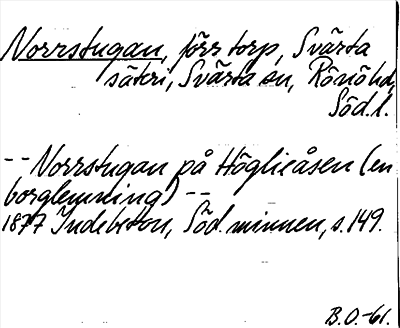 Norrstugan, förr torp, Svärta
säteri, Svärta sn, Rönö hd,
Söd. l.
-- Norrstugan på Höglieåsen (en
borglemning) --
1877 Indebetou, Söd. minnen, s. 149.
B.O.-61.